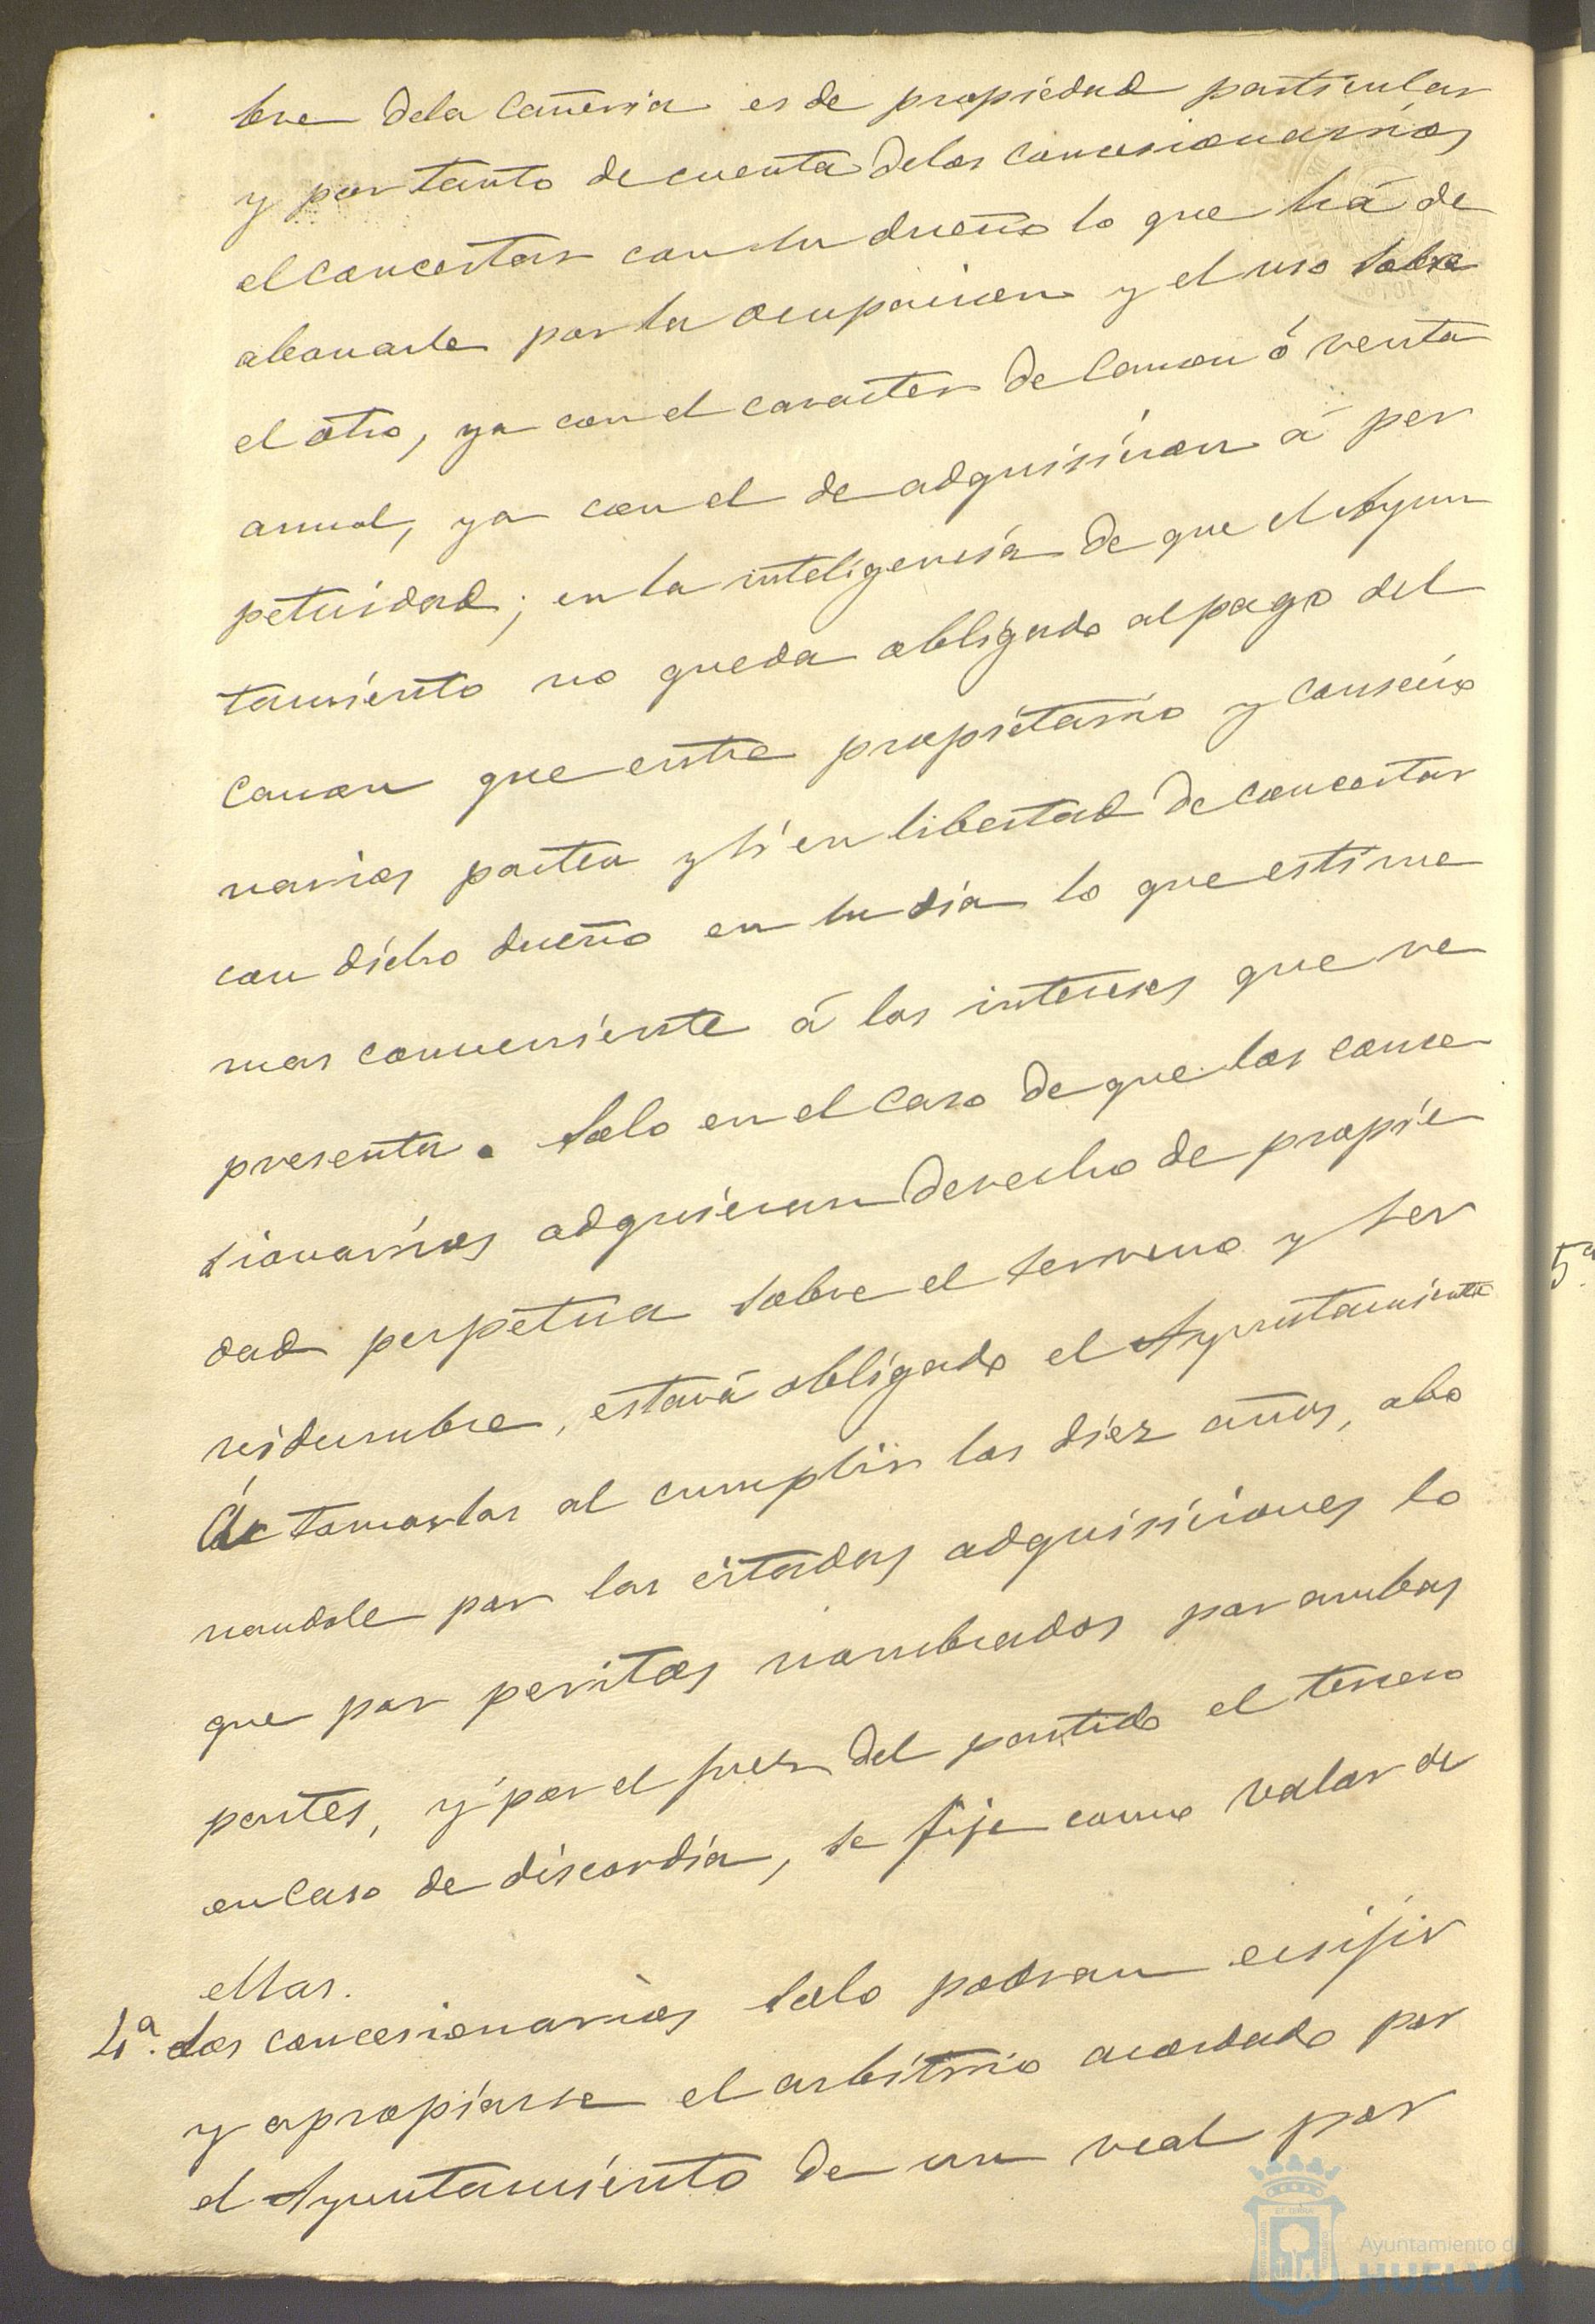 bre dela Cañeria es de propiedad particular
y por tanto de cuenta delos concesionarios
el concertar con su dueño lo que há de
abonarle por la ocupacion y el uso sobre
el otro, ya con el caracter de Canon ó renta
anual, ya con el de adquisicion á per
petuidad; en la inteligencia de que el Ayun
tamiento no queda obligado al pago del
Canon que entre propietario y concecio
narios pacten y si en libertad de concertar
con dicho dueño en su dia lo que estime
mas conveniente á los intereses que re
presenta. Solo en el Caso de que los conce
sionarios adquieran derecho de propie
dad perpetua sobre el terreno y ser
vidumbre, estará obligado el Ayuntamiento
á tomarlas al cumplir los diez años, abo
nandole por las citadas adquisiciones lo
que por peritos nombrados por ambas
partes, y por el Juez del partido el tercero
en Caso de discordia, se fije como valor de
ellas.
4ª. Los concesionarios solo podran ecsijir
y apropiarse el arbitrio acordado por
el Ayuntamiento de un real por
5ª
Ayuntamiento de
HUELVA